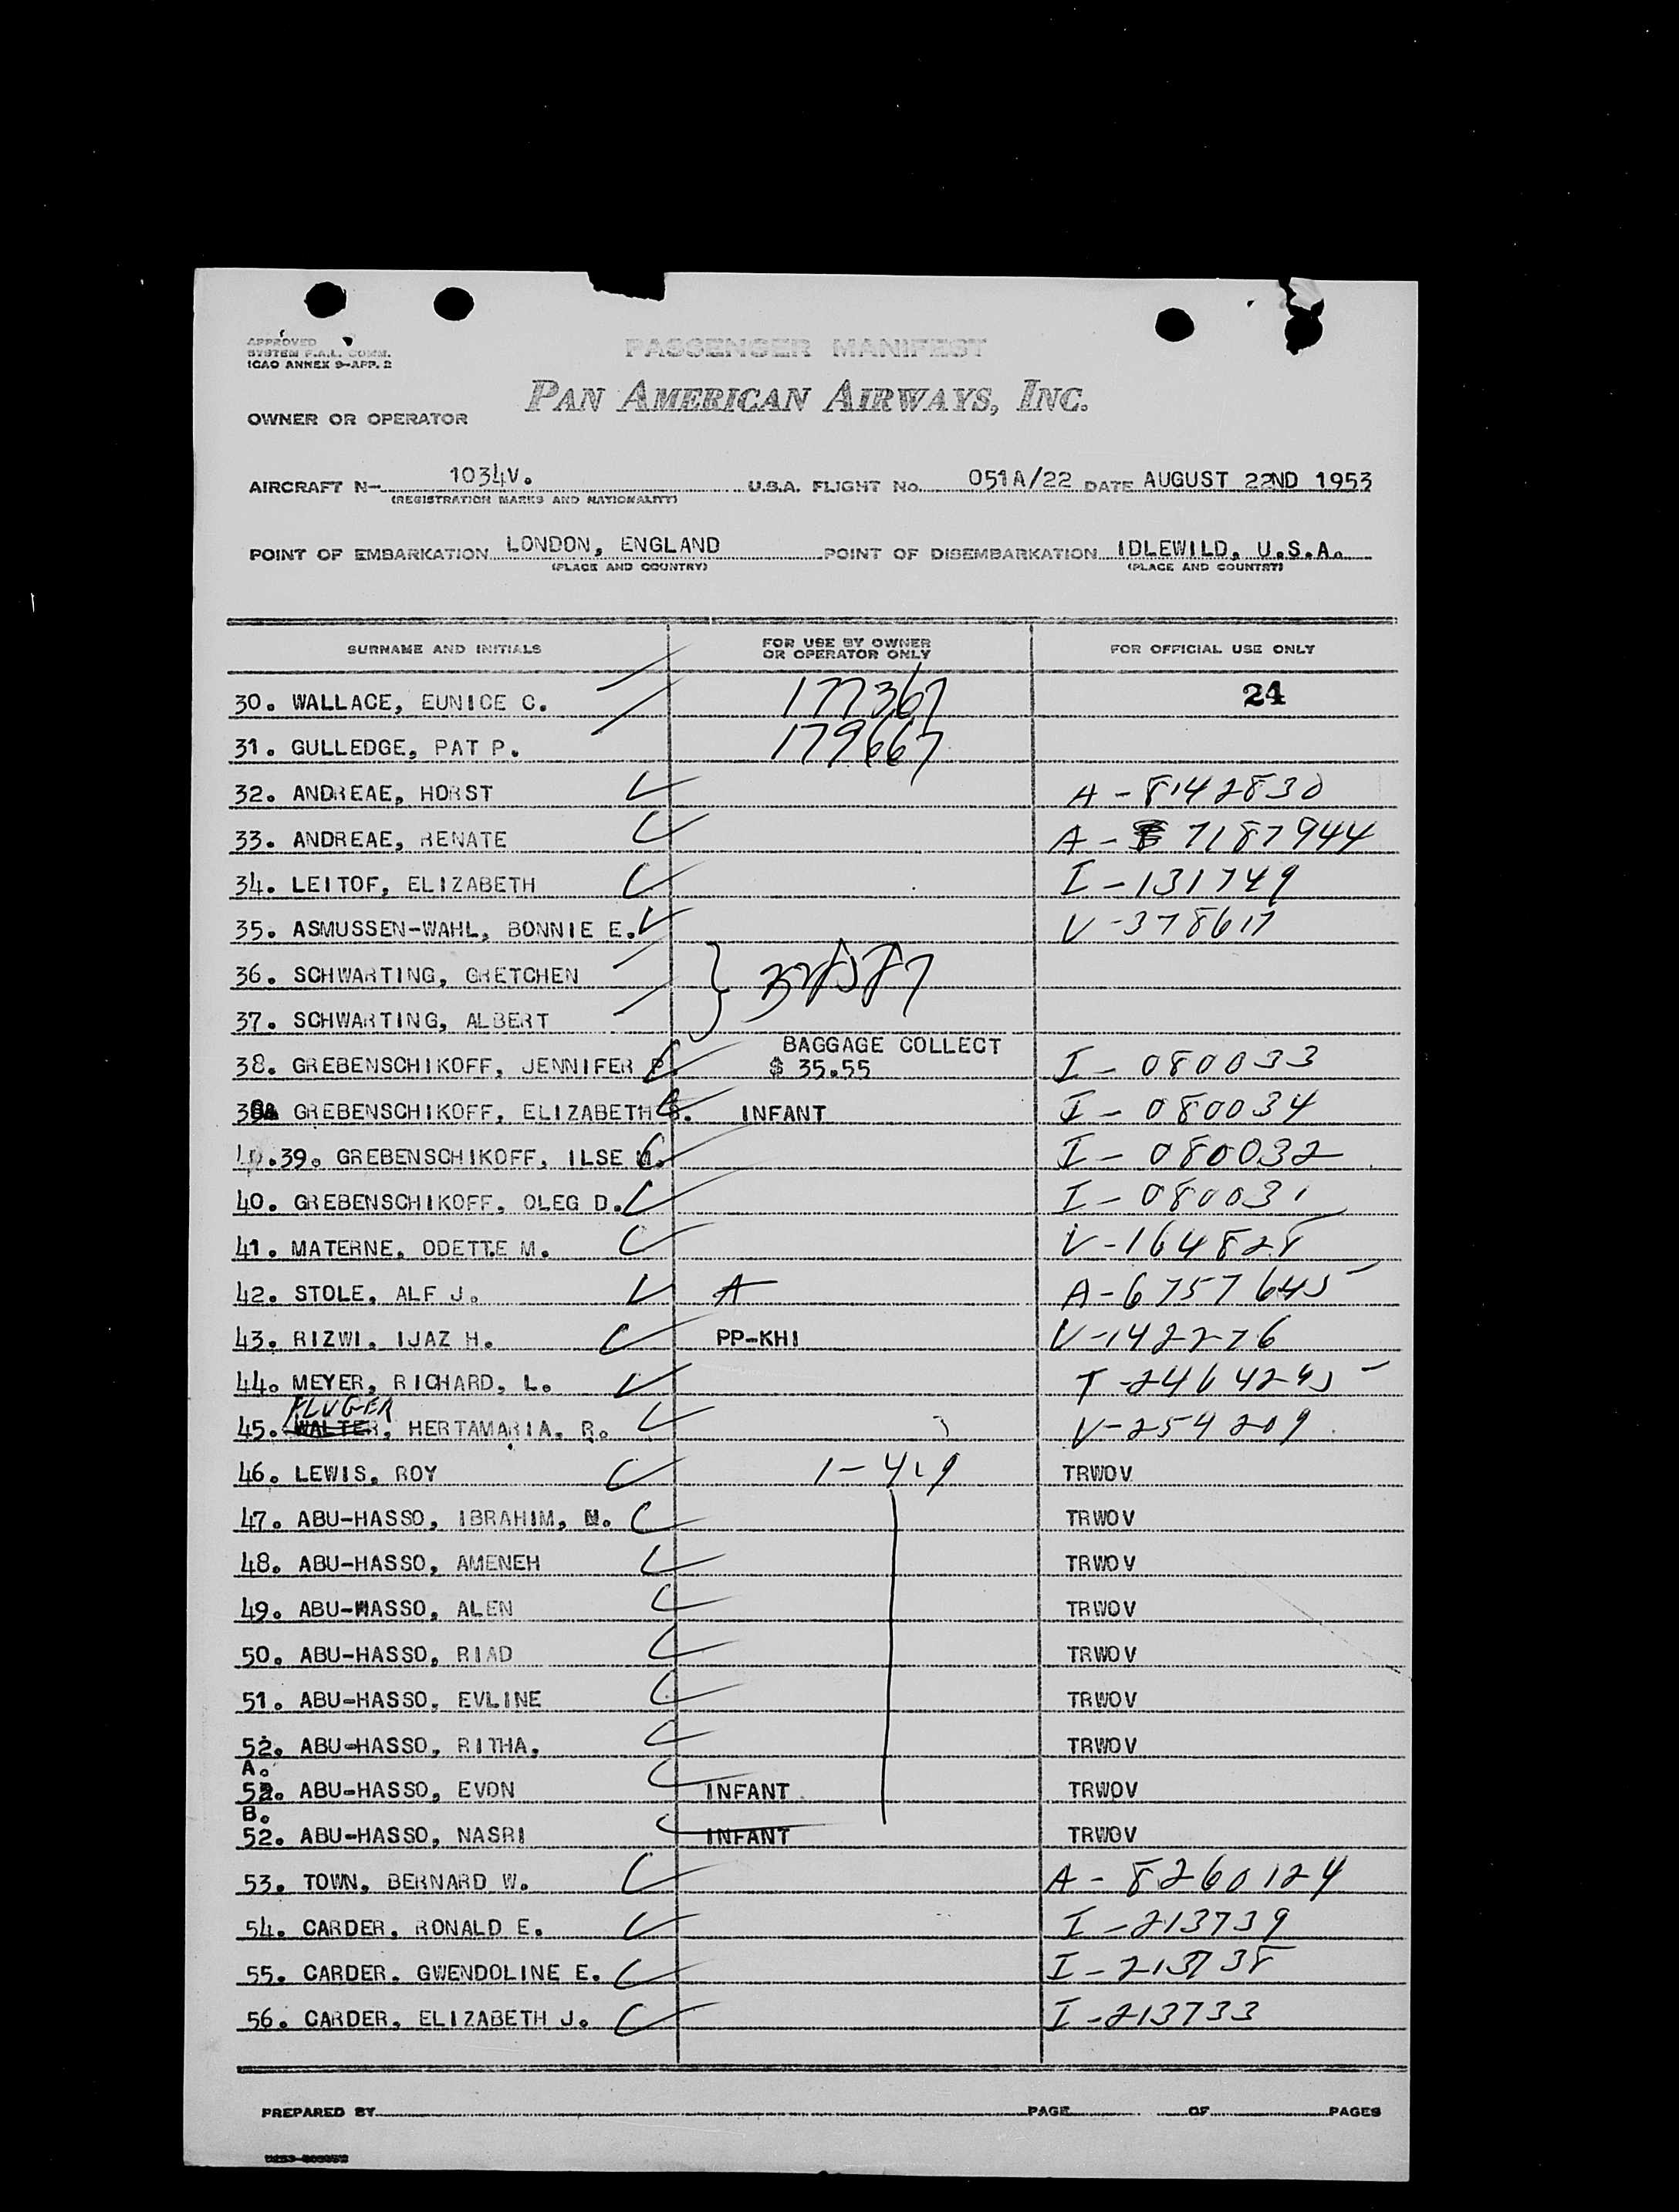 APPROVED
SYSTEM F.A.L. COMM.
ICAO ANNEX 9-APP. 2
PASSENGER MANIFEST
PAN AMERICAN AIRWAYS, INC.
OWNER OR OPERATOR
AIRCRAFT N- 1034V. U.S.A. FLIGHT No. 051A/22 DATE AUGUST 22ND 1953
(REGISTRATION MARKS AND NATIONALITY)
POINT OF EMBARKATION LONDON, ENGLAND POINT OF DISEMBARKATION IDLEWILD, U.S.A.
(PLACE AND COUNTRY) (PLACE AND COUNTRY)
SURNAME AND INITIALS FOR USE BY OWNER OR OPERATOR ONLY FOR OFFICIAL USE ONLY
30. WALLACE, EUNICE C. 177367 24
31. GULLEDGE, PAT P. 179667
32. ANDREAE, HORST A-8142830
33. ANDREAE, RENATE A- 7187944
34. LEITOF, ELIZABETH I-131749
35. ASMUSSEN-WAHL, BONNIE E. V-378617
36. SCHWARTING, GRETCHEN
37. SCHWARTING, ALBERT
BAGGAGE COLLECT
38. GREBENSCHIKOFF, JENNIFER P. $ 35.55 I-080033
38A GREBENSCHIKOFF, ELIZABETH S. INFANT I-080034
39. GREBENSCHIKOFF, ILSE M. I-080032
40. GREBENSCHIKOFF, OLEG D. I-080031
41. MATERNE, ODETTE M. V-164828
42. STOLE, ALF J. A A-6757645
43. RIZWI, IJAZ H. PP-KHI V-142276
44. MEYER, RICHARD, L. T-2464295
KLUGER
45. WALTER, HERTAMARIA, R. V-254209
46. LEWIS, ROY 1-419 TRWOV
47. ABU-HASSO, IBRAHIM, N. TRWOV
48. ABU-HASSO, AMENEH TRWOV
49. ABU-HASSO, ALEN TRWOV
50. ABU-HASSO, RIAD TRWOV
51. ABU-HASSO, EVLINE TRWOV
52. ABU-HASSO, RITHA. TRWOV
A.
52. ABU-HASSO, EVON INFANT TRWOV
B.
52. ABU-HASSO, NASRI INFANT TRWOV
53. TOWN, BERNARD W. A-8260124
54. CARDER, RONALD E. I-213739
55. CARDER, GWENDOLINE E. I-213738
56. CARDER, ELIZABETH J. I-213733
PREPARED BY PAGE OF PAGES